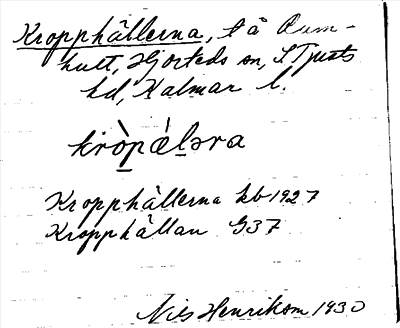 Kropphällerna, t å Rum-
hult, Hjorteds sn, S Tjusts
hd, Kalmar l.
kròpǽləra
Kropphällerna hb 1927
Kropphällan G37
Nils Henrikson 1930